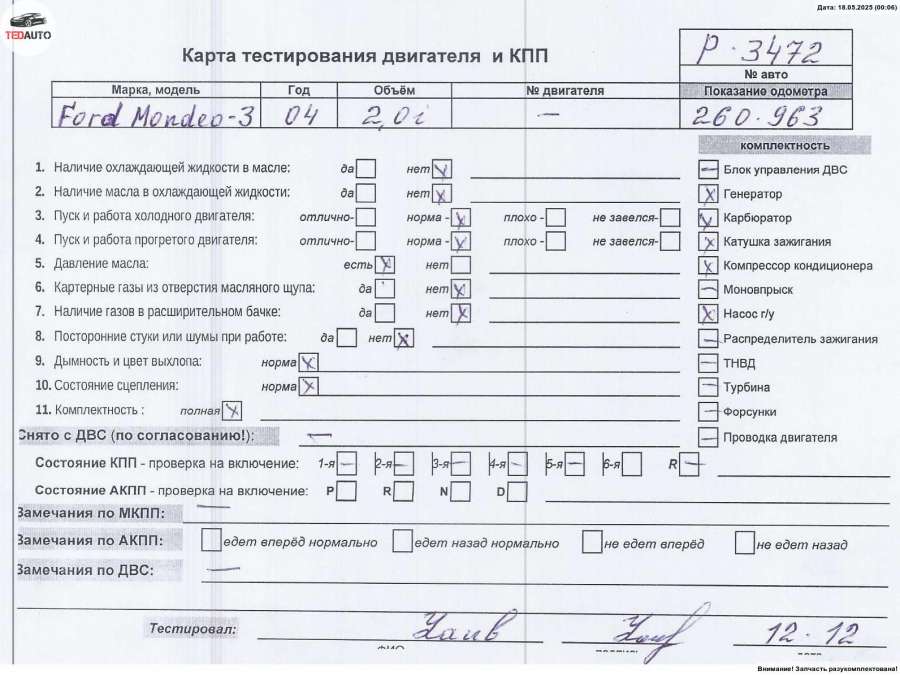 Дата: 18.05.2025 (00:06)
TEDAUTO
Карта тестирования двигателя и КПП
P-3472
№ авто
Марка, модель Год Объём № двигателя Показание одометра
Ford Mondeo-3 04 2,0i — 260.963
комплектность
1. Наличие охлаждающей жидкости в масле: да нет
Блок управления ДВС
2. Наличие масла в охлаждающей жидкости: да нет
Генератор
3. Пуск и работа холодного двигателя: отлично- норма - плохо - не завелся-
Карбюратор
4. Пуск и работа прогретого двигателя: отлично- норма - плохо - не завелся-
Катушка зажигания
5. Давление масла: есть нет
Компрессор кондиционера
6. Картерные газы из отверстия масляного щупа: да нет
Моновпрыск
7. Наличие газов в расширительном бачке: да нет
Насос г/у
8. Посторонние стуки или шумы при работе: да нет
Распределитель зажигания
9. Дымность и цвет выхлопа: норма
ТНВД
10. Состояние сцепления: норма
Турбина
11. Комплектность : полная
Форсунки
Снято с ДВС (по согласованию!): —
Проводка двигателя
Состояние КПП - проверка на включение: 1-я 2-я 3-я 4-я 5-я 6-я R
Состояние АКПП - проверка на включение: P R N D
Замечания по МКПП: —
Замечания по АКПП: едет вперёд нормально едет назад нормально не едет вперёд не едет назад
Замечания по ДВС: —
Тестировал: 12.12
Внимание! Запчасть разукомплектована!